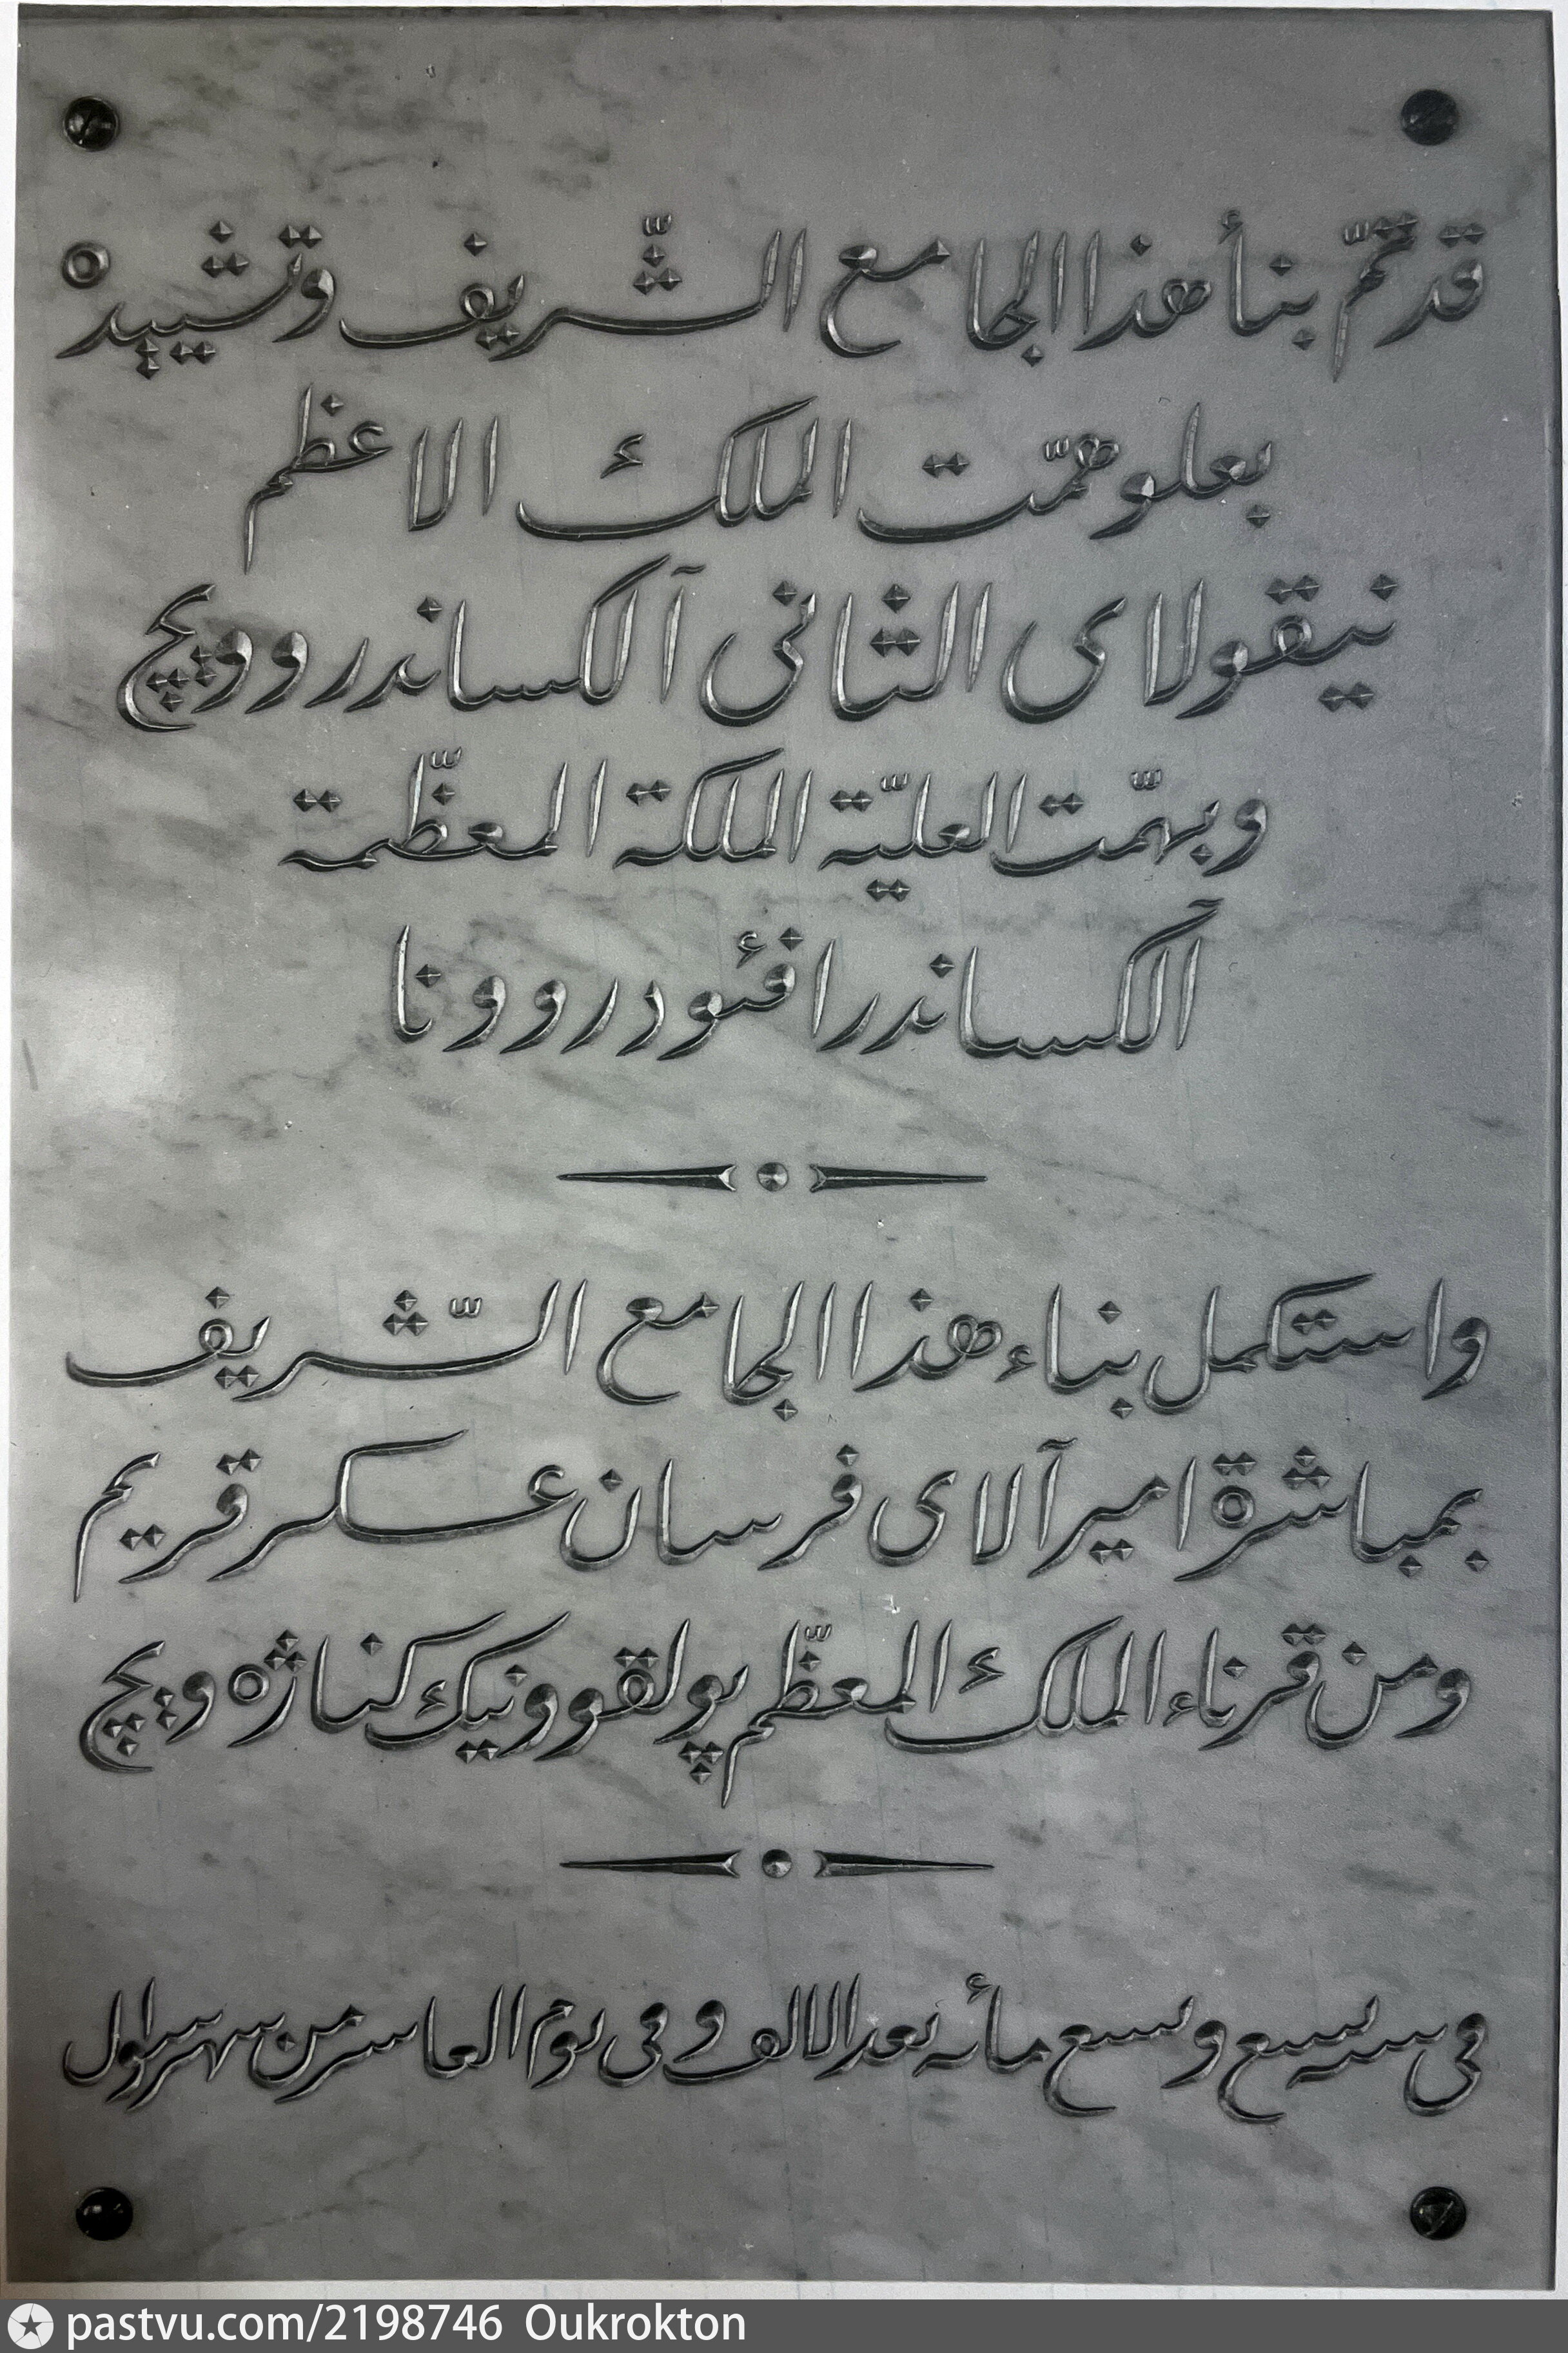 قد تمّ بنأ هذا الجامع الشّريف وتشييده
بعلو همّت الملك الاعظم
نيقولاى الثانى آلكساندروويچ
وبهمّت العليّة الملكة المعظّمة
آلكساندرا فئودروونا
واستكمل بناء هذا الجامع الشّريف
بمباشرة امير آلاى فرسان عسكر قريم
ومن قرناء الملك المعظّم پولقوونيك كناژه ويچ
فى سىه سىع وىسع مأىه ىعد الالف و فى ىوم العاسر من سهر
pastvu.com/2198746 Oukrokton